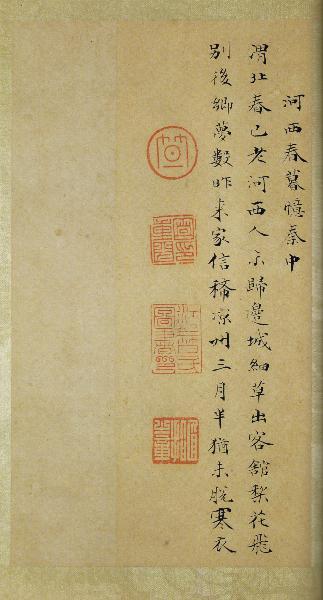 河西春暮憶秦中
渭北春已老河西人未歸邊城細草出客館梨花飛
別後鄉夢數昨來家信稀涼州三月半猶未脫寒衣